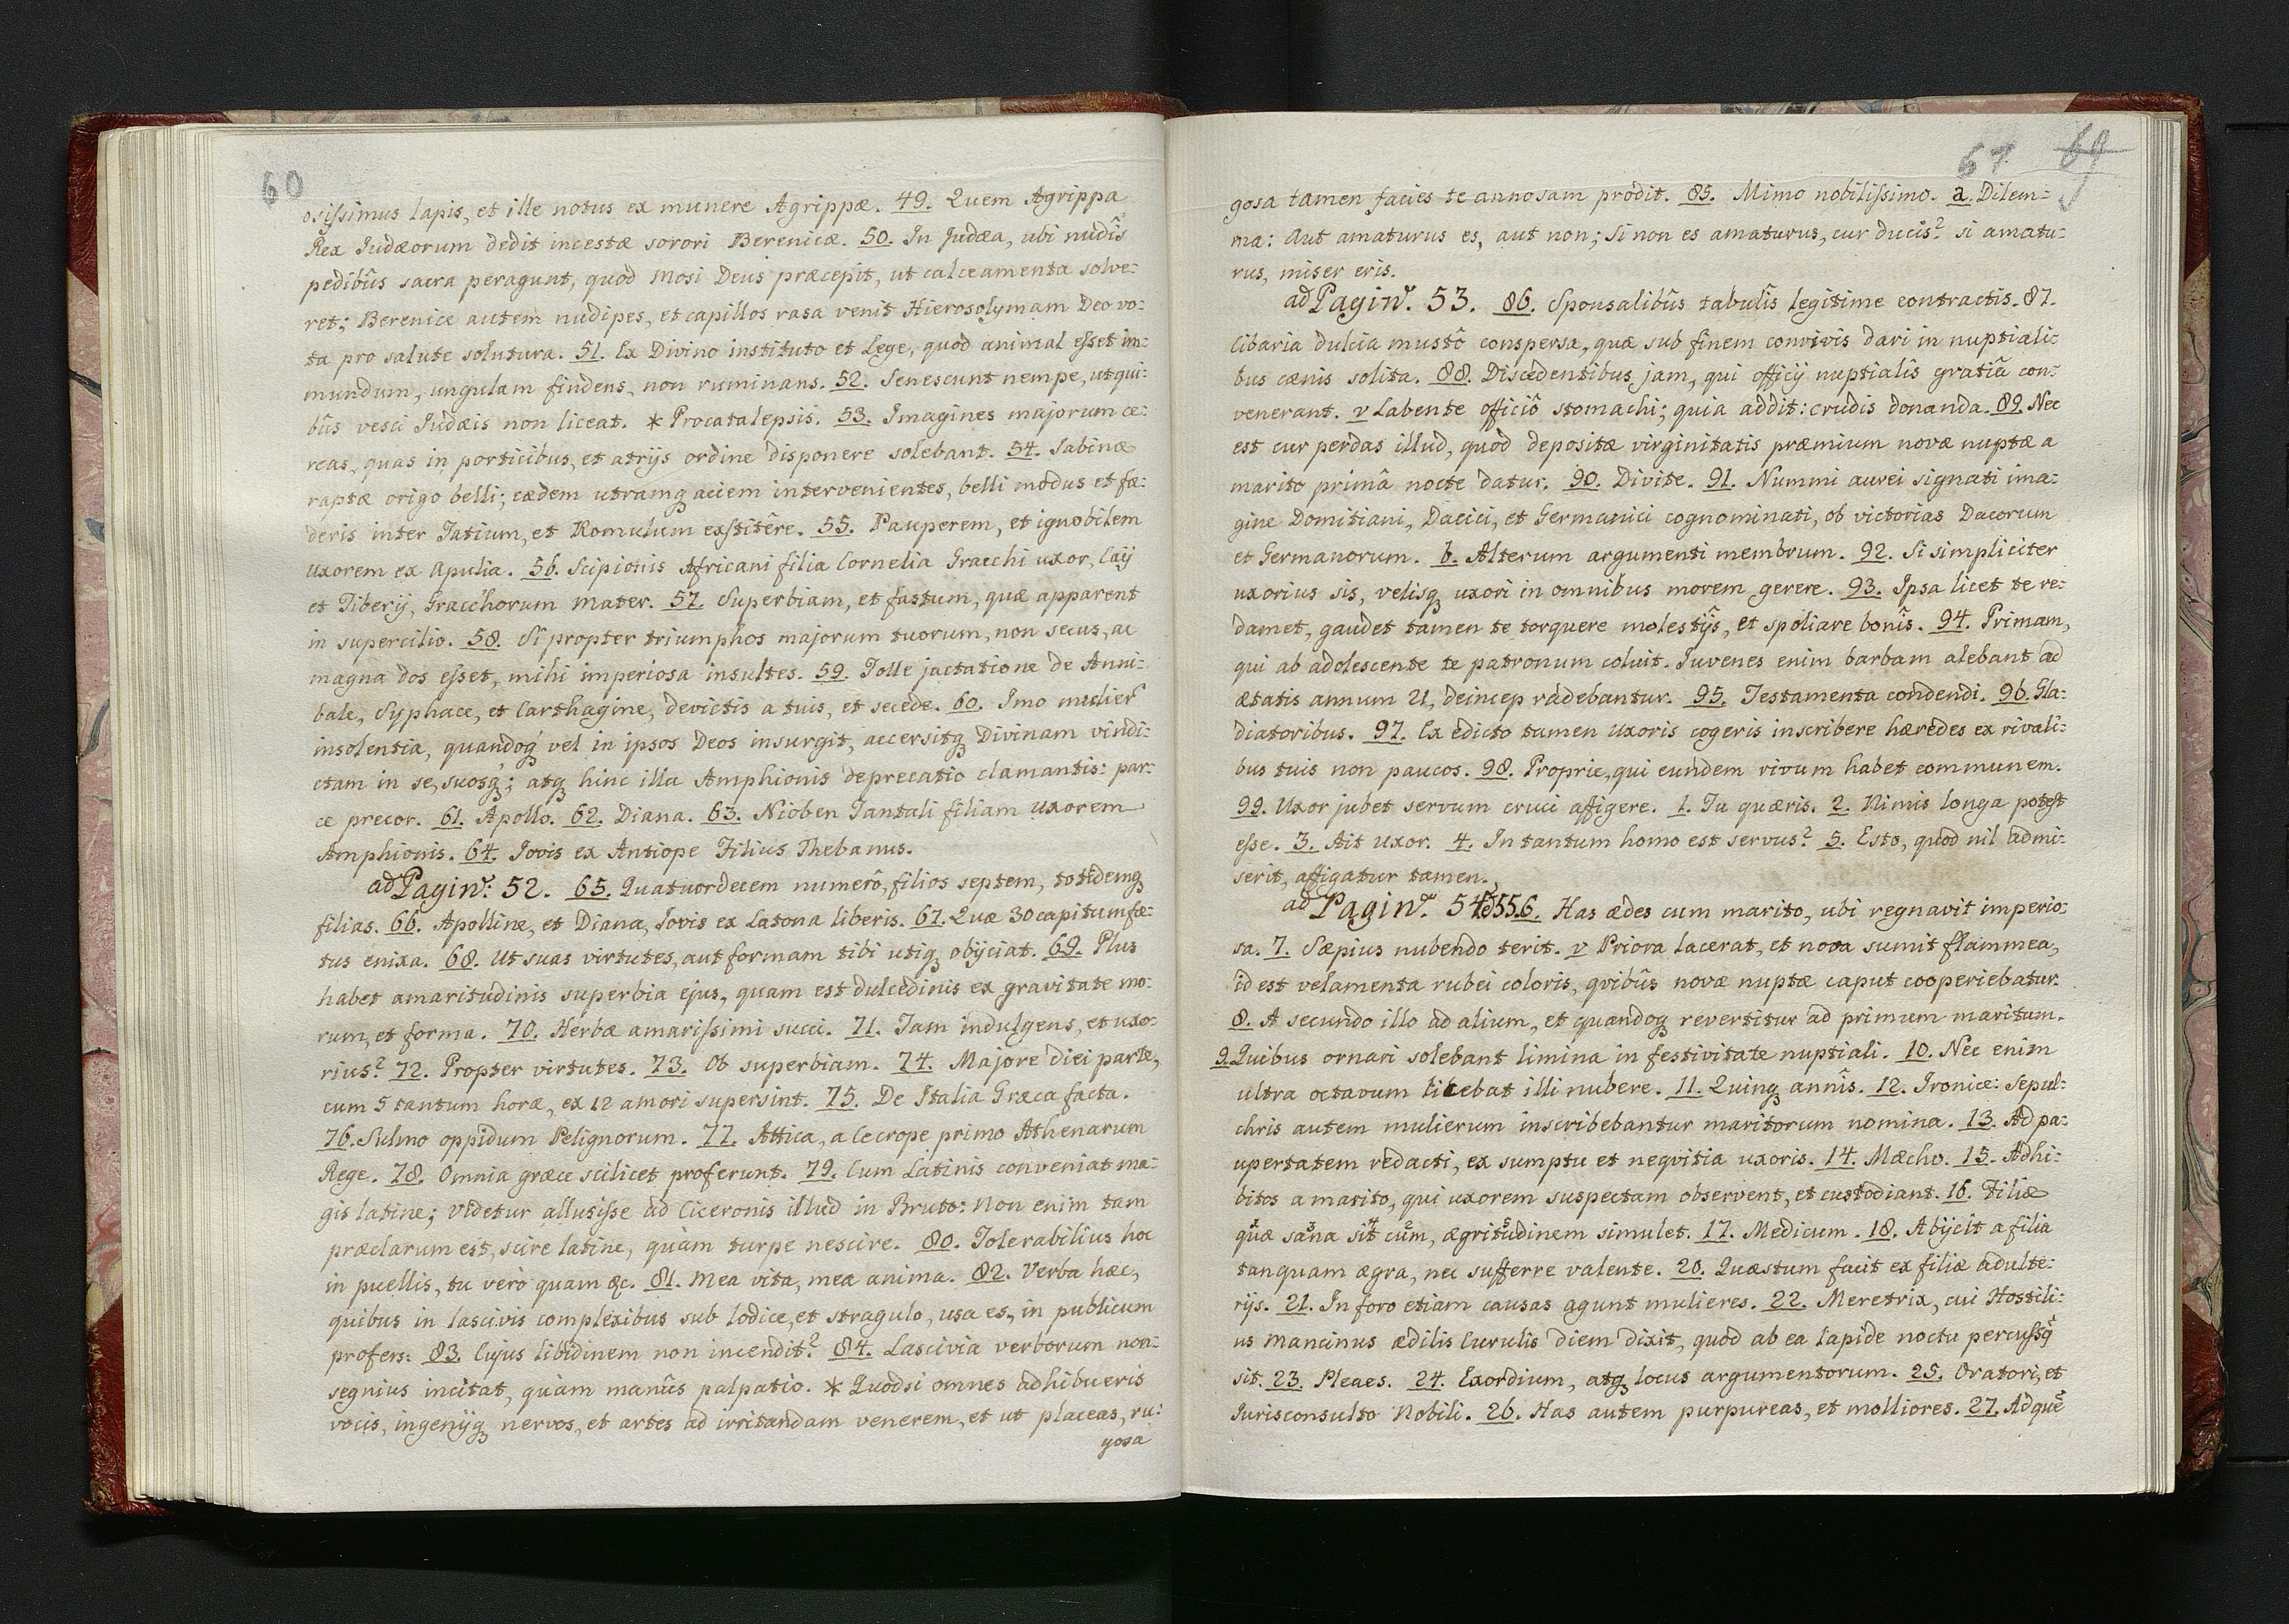 60
osissimus lapis, et ille notus ex munere Agrippæ. 49. Quem Agrippa
Rex Iudæorum dedit incestæ sorori Berenicæ. 50. In Judæa, ubi nudîs
pedibûs sacra peragunt, quod Mosi Deus præcepit, ut calceamenta solve:
ret; Berenice autem nudipes, et capillos rasa venit Hierosolymam Deo vo:
ta pro salute solutura. 51. Ex Divino instituto et Lege, quod animal esset im:
mundum, ungulam findens, non ruminans. 52. Senescunt nempe, ut qui:
bûs vesci Iudæis non liceat. * Procatalepsis. 53. Imagines majorum ce:
reas, quas in porticibus, et atrijs ordine disponere solebant. 54. Sabinæ
raptæ origo belli; eædem utramq aciem intervenientes, belli modus et fæ:
deris inter Tatium, et Romulum exstitêre. 55. Pauperem, et ignobilem
uxorem ex Apulia. 56. Scipionis Africani filia Cornelia Gracchi uxor, Caij
et Tiberij, Gracchorum mater. 57. Superbiam, et fastum, quæ apparent
in supercilio. 58. Si propter triumphos majorum tuorum, non secus, ac
magna dos esset, mihi imperiosa insultes. 59. Tolle jactatione de Anni:
bale, Syphace, et Carthagine, devictis a tuis, et secede. 60. Imo mulier
insolentia, quandoq vel in ipsos Deos insurgit, accersitq Divinam vindi:
ctam in se, suosq; atq hinc illa Amphionis deprecatio clamantis: par:
ce precor. 61. Apollo. 62. Diana. 63. Nioben Tantali filiam uxorem
Amphionis. 64. Jovis ex Antiope Filius Thebanus.
ad Pagin. 52. 65. Quatuordecem numerô, filios septem, totidemq
filias. 66. Apolline, et Diana, Jovis ex Latona liberis. 67. Quæ 30 capitum fæ:
tus enixa. 68. Ut suas virtutes, aut formam tibi utiq objiciat. 69. Plus
habet amaritudinis superbia ejus, quam est dulcedinis ex gravitate mo:
rum, et forma. 70. Herbæ amarissimi succi. 71. Tam indulgens, et uxo:
rius? 72. Propter virtutes. 73. Ob superbiam. 74. Majore diei parte,
cum 5 tantum horæ, ex 12 amori supersint. 75. De Italia Græca facta.
76. Sulmo oppidum Pelignorum. 77. Attica, a Cecrope primo Athenarum
Rege. 78. Omnia græce scilicet proferunt. 79. Cum Latinis conveniat ma:
gis latine; videtur allusisse ad Ciceronis illud in Bruto: Non enim tam
præclarum est, scire latine, quàm turpe nescire. 80. Tolerabilius hoc
in puellis, tu verò quam &c. 81. Mea vita, mea anima. 82. Verba hæc,
quibus in lascivis complexibus sub lodice, et stragulo, usa es, in publicum
profers: 83. Cujus libidinem non incendit? 84. Lascivia verborum non:
segnius incitat, quàm manûs palpatio. * Quodsi omnes adhibueris
vocis, ingenijq nervos, et artes ad irritandam venerem, et ut placeas, ru:
gosa
61 69
gosa tamen facies te annosam prodit. 85. Mimo nobilissimo. a. Dilem:
ma: Aut amaturus es, aut non; Si non es amaturus, cur ducis? si amatu:
rus, miser eris.
ad Pagin. 53. 86. Sponsalibûs tabulîs legitime contractis. 87.
Cibaria dulcia mustô conspersa, quæ sub finem convivis dari in nuptiali:
bus cænis solita. 88. Discedentibus jam, qui officij nuptialis gratiâ con:
venerant. v Labente officiô stomachi; quia addit: crudis donanda. 89. Nec
est cur perdas illud, quod depositæ virginitatis præmium novæ nuptæ a
marito primâ nocte datur. 90. Divite. 91. Nummi aurei signati ima:
gine Domitiani, Dacici, et Germanici cognominati, ob victorias Dacorum
et Germanorum. b. Alterum argumenti membrum. 92. Si simpliciter
uxorius sis, velisq uxori in omnibus morem gerere. 93. Ipsa licet te re:
damet, gaudet tamen te torquere molestijs, et spoliare bonîs. 94. Primam,
qui ab adolescente te patronum coluit. Juvenes enim barbam alebant ad
ætatis annum 21, deincep radebantur. 95. Testamenta condendi. 96. Gla:
diatoribus. 97. Ex edicto tamen uxoris cogeris inscribere hæredes ex rivali:
bus tuis non paucos. 98. Proprie, qui eundem rivum habet communem.
99. Uxor jubet servum cruci affigere. 1. Tu quæris. 2. Nimis longa potest
esse. 3. Ait uxor. 4. In tantum homo est servus? 5. Esto, quod nil admi:
serit, affigatur tamen.
ad Pagin. 54 & 55 6. Has ædes cum marito, ubi regnavit imperio:
sa. 7. Sæpius nubendo terit. v Priora lacerat, et nova sumit flammea,
id est velamenta rubei coloris, qvibûs novæ nuptæ caput cooperiebatur.
8. A secundo illo ad alium, et quandoq revertitur ad primum maritum.
9. Quibus ornari solebant limina in festivitate nuptiali. 10. Nec enim
ultra octavum licebat illi nubere. 11. Quinq annîs. 12. Ironice: Sepul:
chris autem mulierum inscribebantur maritorum nomina. 13. Ad pa:
upertatem redacti, ex sumptu et neqvitia uxoris. 14. Mæcho. 15. Adhi:
bitos a marito, qui uxorem suspectam observent, et custodiant. 16. Filiæ
quæ sana sit cum, ægritudinem simulet. 17. Medicum. 18. Abijcit a filia
tanquam ægra, nec sufferre valente. 20. Quæstum facit ex filiæ adulte:
rijs. 21. In foro etiam causas agunt mulieres. 22. Meretrix, cui Hostili:
us Mancinus ædilis Curulis diem dixit, quod ab ea lapide noctu percussq
sit. 23. Pleaes. 24. Exordium, atq locus argumentorum. 25. Oratori, et
Jurisconsulto Nobili. 26. Has autem purpureas, et molliores. 27. Ad quẽ